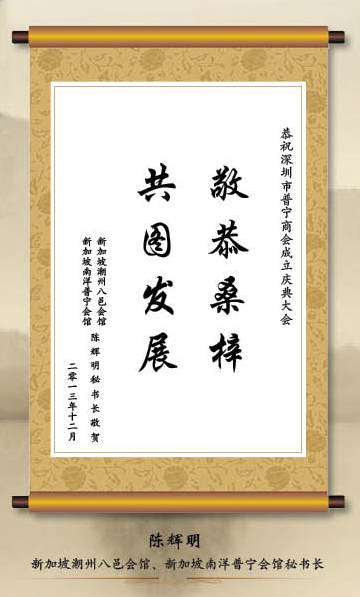 恭祝深圳市普宁商会成立庆典大会
敬恭桑梓
共图发展
新加坡潮州八邑会馆
新加坡南洋普宁会馆
陈辉明秘书长敬贺
二零一三年十二月
陈辉明
新加坡潮州八邑会馆、新加坡南洋普宁会馆秘书长